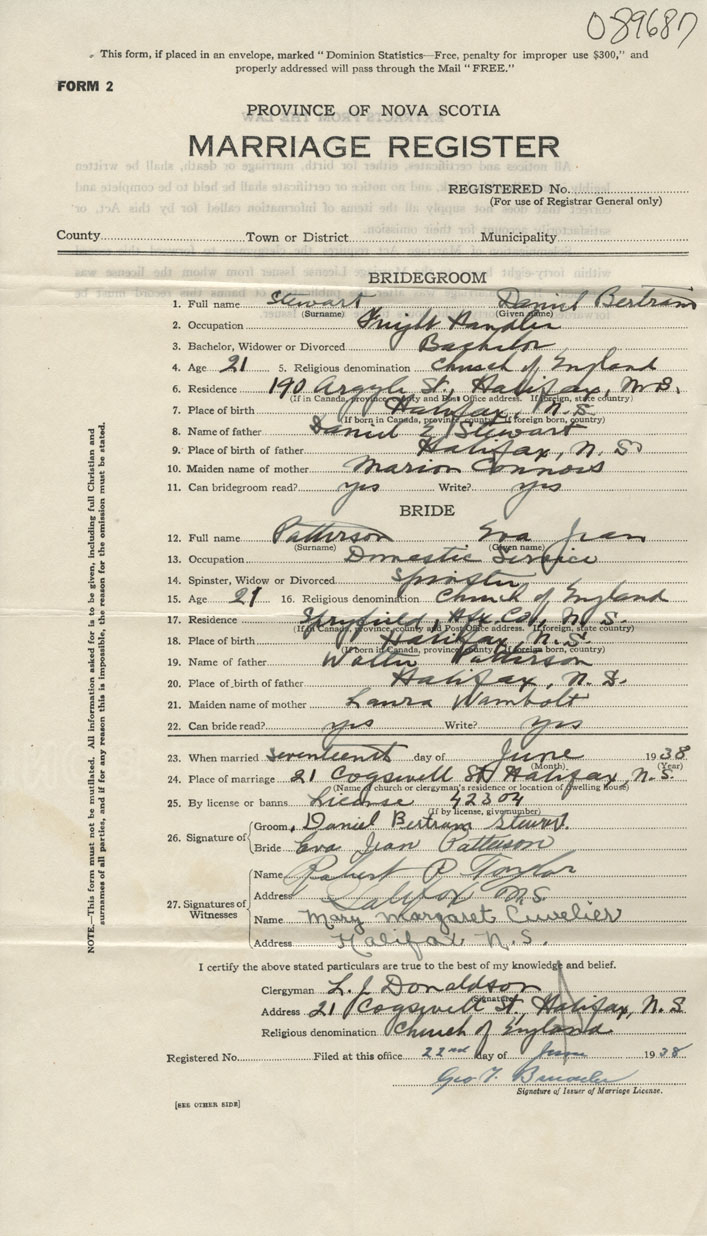 089687
This form, if placed in an envelope, marked "Dominion Statistics—Free, penalty for improper use $300," and
properly addressed will pass through the Mail "FREE."
FORM 2
PROVINCE OF NOVA SCOTIA
MARRIAGE REGISTER
REGISTERED No.
(For use of Registrar General only)
County Town or District Municipality
BRIDEGROOM
1. Full name Stewart Daniel Bertram
(Surname) (Given name)
2. Occupation Freight Handler
3. Bachelor, Widower or Divorced Bachelor
4. Age 21 5. Religious denomination Church of England
6. Residence 190 Argyle St., Halifax, N.S.
(If in Canada, province, county and Post Office address. If foreign, state country)
7. Place of birth Halifax, N.S.
(If born in Canada, province, county) (If foreign born, country)
8. Name of father Daniel E Stewart
9. Place of birth of father Halifax, N.S.
10. Maiden name of mother Marion Connors
11. Can bridegroom read? yes Write? yes
BRIDE
12. Full name Patterson Eva Jean
(Surname) (Given name)
13. Occupation Domestic Service
14. Spinster, Widow or Divorced Spinster
15. Age 21 16. Religious denomination Church of England
17. Residence Spryfield, Hfx. Co., N.S.
(If in Canada, province, county and Post Office address. If foreign, state country)
18. Place of birth Halifax N.S.
(If born in Canada, province, county) (If foreign born, country)
19. Name of father Walter Patterson
20. Place of birth of father Halifax, N.S.
21. Maiden name of mother Laura Wambolt
22. Can bride read? yes Write? yes
23. When married seventeenth day of June 1938
(Month) (Year)
24. Place of marriage 21 Cogswell St, Halifax, N.S.
(Name of church or clergyman's residence or location of dwelling house)
25. By license or banns License 42304
(If by license, give number)
26. Signature of Groom Daniel Bertram Stewart.
Bride Eva Jean Patterson
27. Signatures of Witnesses Name Robert P Taylor
Address Halifax N.S.
Name Mary Margaret Cuvelier
Address Halifax N.S.
I certify the above stated particulars are true to the best of my knowledge and belief.
Clergyman L. J. Donaldson
(Signature)
Address 21 Cogswell St. Halifax, N.S
Religious denomination Church of England
Registered No. Filed at this office 22nd day of June 1938
Geo T.
Signature of Issuer of Marriage License.
[SEE OTHER SIDE]
NOTE.—This form must not be mutilated. All information asked for is to be given, including full Christian and
surnames of all parties, and if for any reason this is impossible, the reason for the omission must be stated.